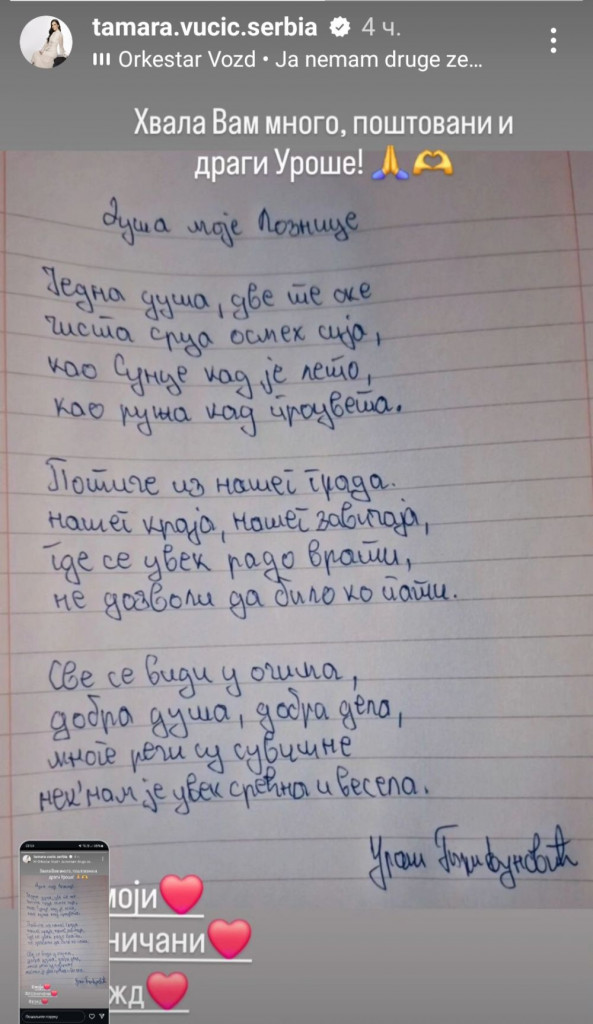 tamara.vucic.serbia 4 ч.
Orkestar Vozd • Ja nemam druge ze...
Хвала Вам много, поштовани и
драги Уроше! 🙏🫶
Душа моје Лознице
Једна душа, две те оке
чиста срца осмех сија,
као Сунце кад је лето,
као ружа кад процвета.
Потиче из нашег града.
нашег краја, нашег завичаја,
где се увек радо врати,
не дозволи да било ко пати.
Све се види у очима,
добра душа, добра дела,
многе речи су сувишне
нек' нам је увек срећна и весела.
Урош
моји❤️
ничани❤️
жд❤️